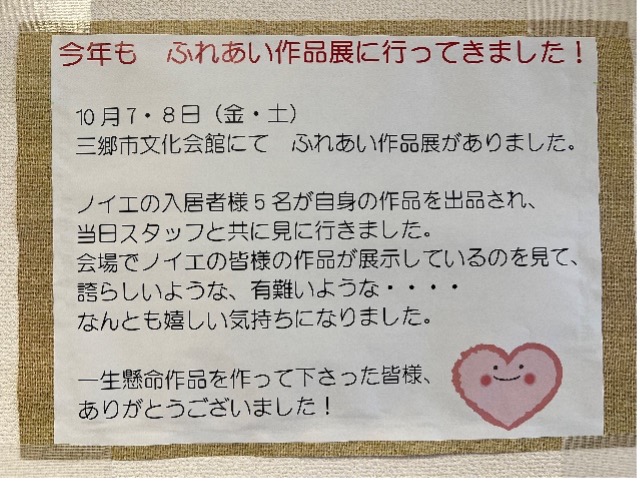 今年も　ふれあい作品展に行ってきました！
10月7・8日（金・土）
三郷市文化会館にて　ふれあい作品展がありました。
ノイエの入居者様5名が自身の作品を出品され、
当日スタッフと共に見に行きました。
会場でノイエの皆様の作品が展示しているのを見て、
誇らしいような、有難いような・・・・
なんとも嬉しい気持ちになりました。
一生懸命作品を作って下さった皆様、
ありがとうございました！